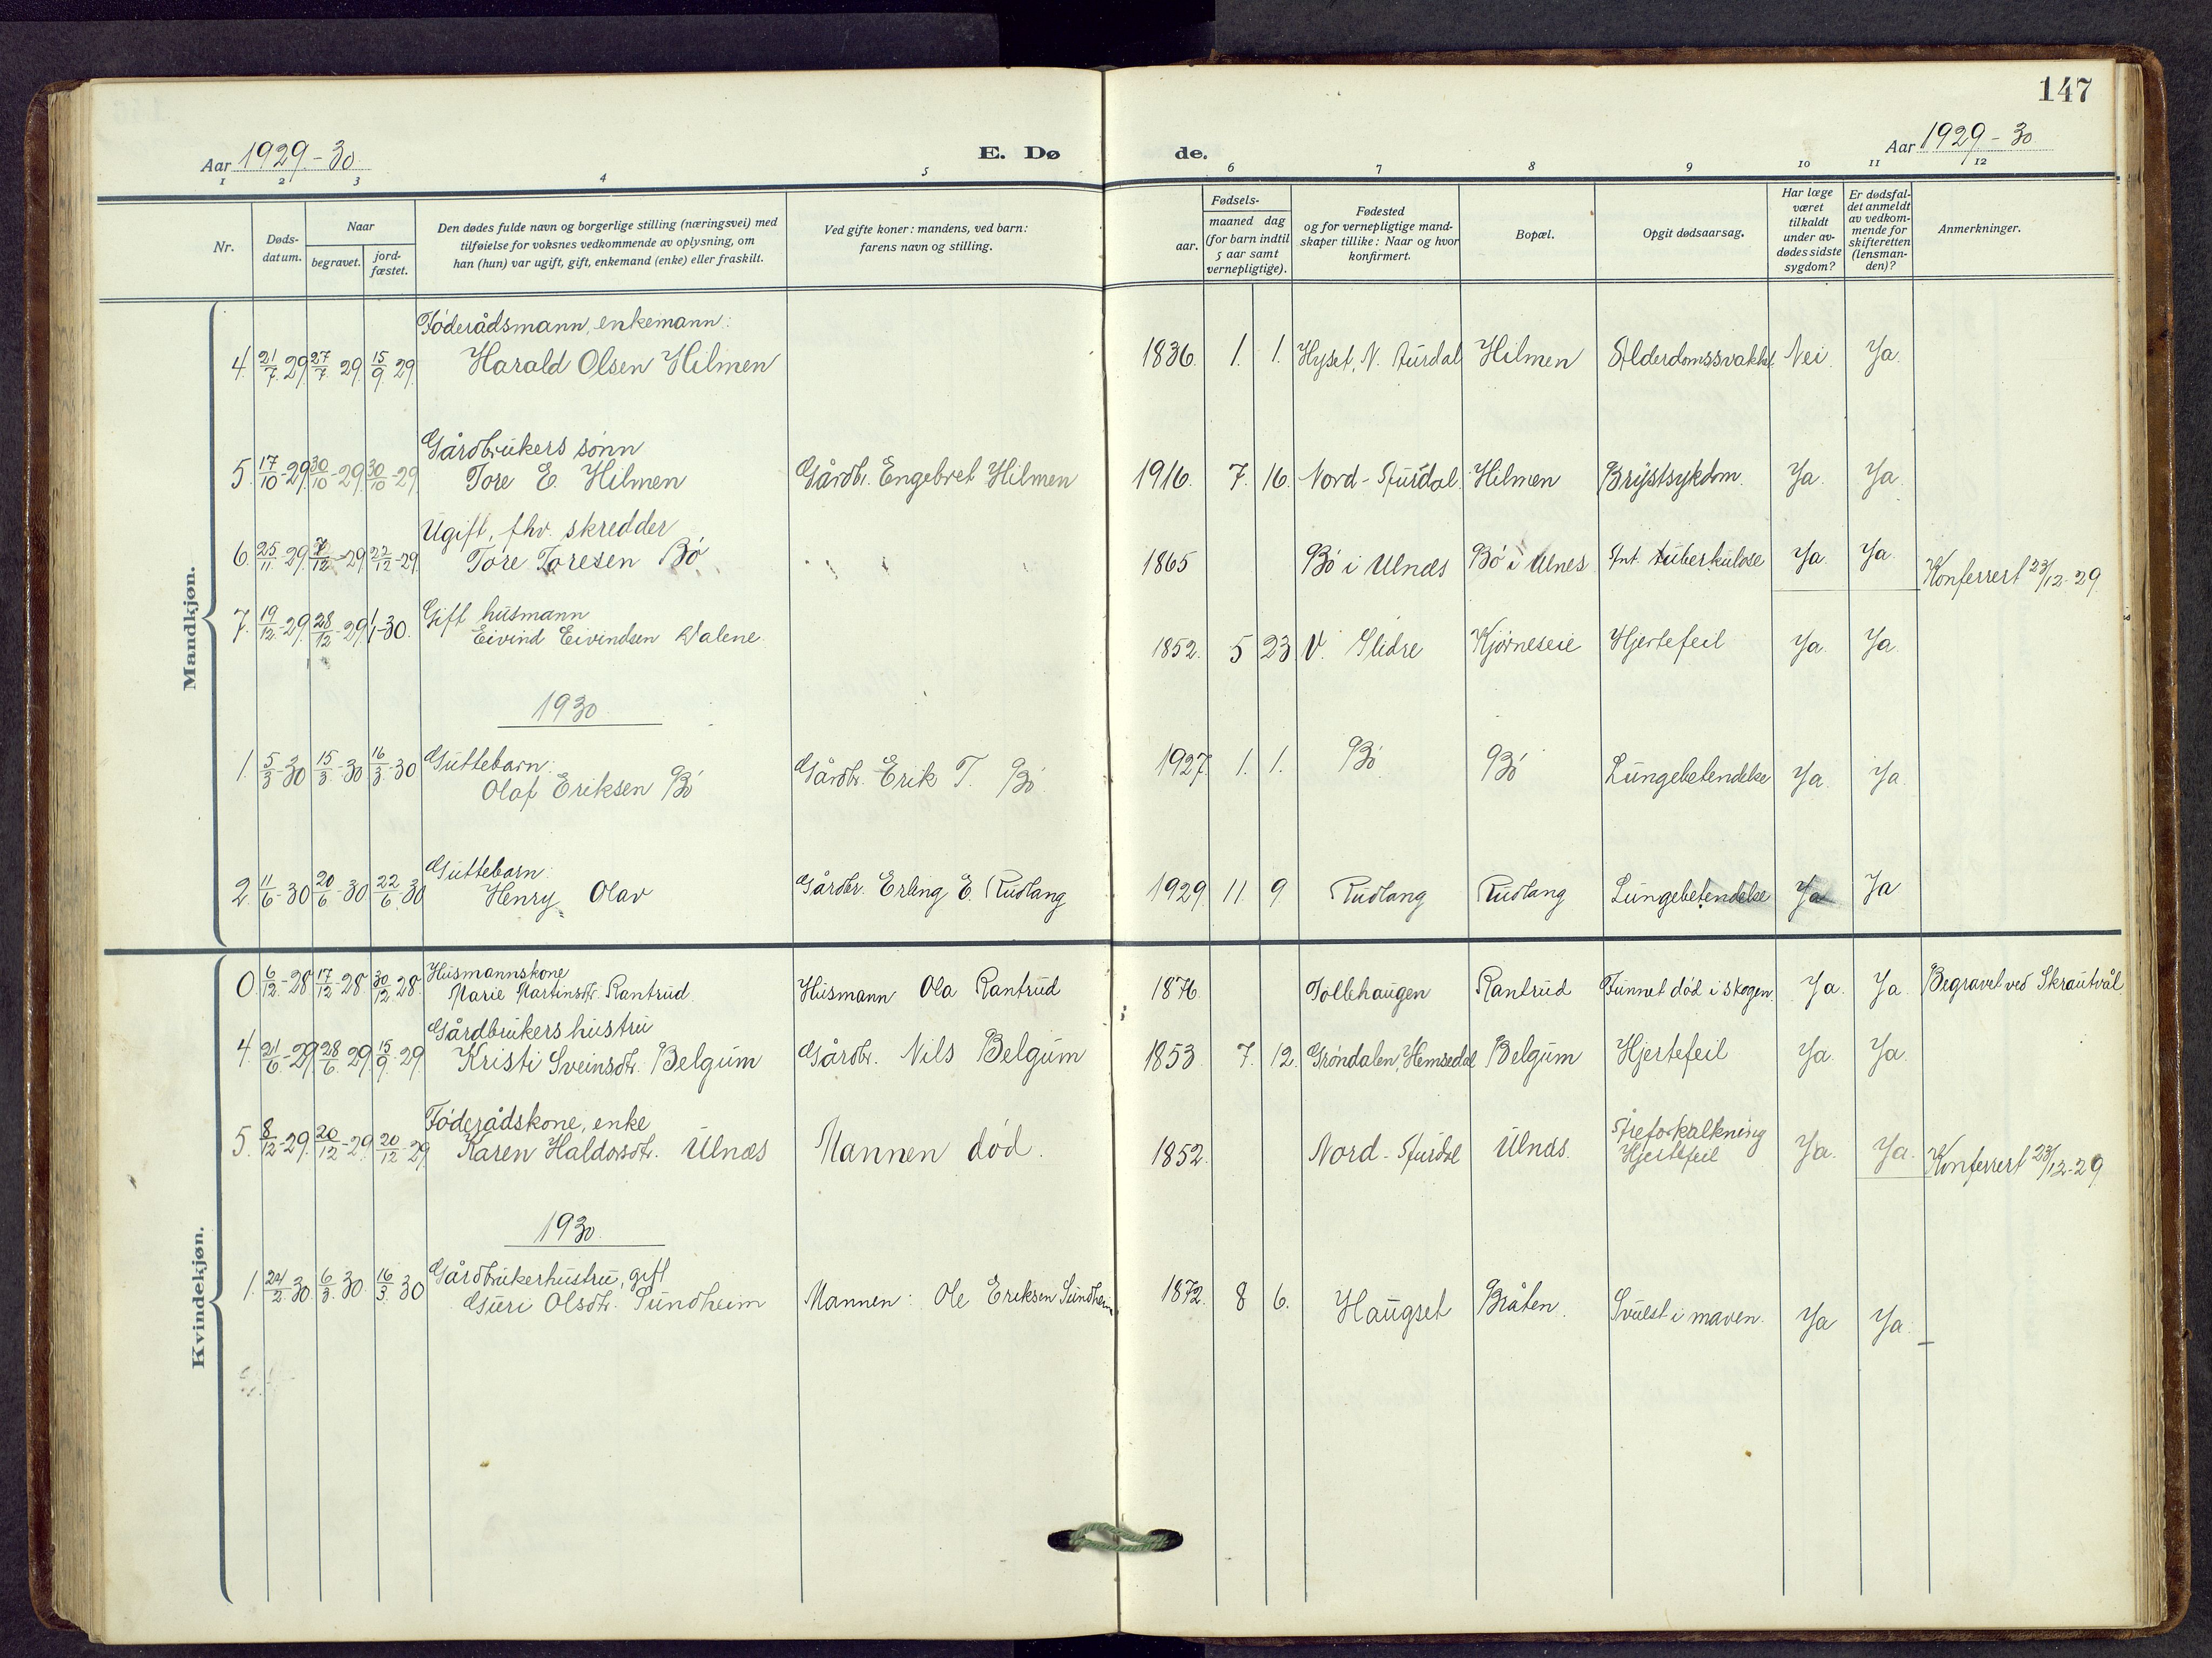 147
Aar 1929-30
E. Dø
de.
Aar 1929-30
1 2 3 4 5 6 7 8 9 10 11 12
Nr.
Døds-
datum.
Naar
begravet.
jord-
fæstet.
Den dødes fulde navn og borgerlige stilling (næringsvei) med
tilføielse for voksnes vedkommende av oplysning, om
han (hun) var ugift, gift, enkemand (enke) eller fraskilt.
Ved gifte koner: mandens, ved barn:
farens navn og stilling.
Fødsels-
aar.
maaned dag
(for barn indtil
5 aar samt
vernepligtige).
Fødested
og for vernepligtige mand-
skaper tillike: Naar og hvor
konfirmert.
Bopæl.
Opgit dødsaarsag.
Har læge
været
tilkaldt
under av-
dødes sidste
sygdom?
Er dødsfal-
det anmeldt
av vedkom-
mende for
skifteretten
(lensman-
den)?
Anmerkninger.
Mandkjøn.
Föderådsmann, enkemann:
4. 21/7 29 27/7 29 15/9 29. Harald Olsen Hilmen 1836. 1. 1. Hyset, N. Aurdal Hilmen Alderdomssvakhet Nei. Ja.
Gårdbrukers sønn
5. 17/10-29 30/10-29 30/10-29 Tore E. Hilmen Gårdbr. Engebret Hilmen 1916. 7. 16. Nord-Aurdal. Hilmen Brystsykdom. Ja. Ja.
Ugift, fhv. skredder
6. 25/11-29. 7/12-29 22/12-29 Tore Toresen Bö 1865 Bö i Ulnæs Bö i Ulnes Int. tuberkulose Ja. Ja. Konferert 23/12-29.
Gift husmann
7. 19/12-29. 28/12-29 1/1-30. Eivind Eivindsen Walene. 1852. 5 23 V. Slidre Kjörneseie Hjertefeil Ja. Ja.
1930
Guttebarn:
1. 5/3-30 15/3-30 16/3-30 Olaf Eriksen Bö Gårdbr. Erik T. Bö. 1927. 1. 1. Bö Bö Lungebetendelse Ja. Ja.
Guttebarn:
2. 11/6-30 20/6-30 22/6-30 Henry Olav Gårdbr. Erling E. Rudlang 1929 11 9 Rudlang Rudlang Lungebetendelse Ja Ja
Kvindekjøn.
Husmannskone
0. 6/12-28 17/12-28. 30/12 28. Marie Martinsdtr. Rantrud. Husmann Ola Rantrud 1876. Tollehaugen Rantrud Funnet död i skogen. Ja. Ja. Begravet ved Skrautvål.
Gårdbrukers hustru
4. 21/6-29 28/6 29. 15/9-29. Kristi Sveinsdtr. Belgum Gårdbr. Nils Belgum 1853 7. 12. Gröndalen, Hemsedal Belgum Hjertefeil Ja. Ja.
Föderådskone, enke
5. 8/12-29. 20/12-29. 20/12-29. Karen Haldorsdtr. Ulnæs Mannen död. 1852. Nord-Aurdal Ulnæs. Åreforkalkning
Hjertefeil Ja. Ja. Konferert 23/12-29
1930.
Gårdbrukerhustru, gift
1. 24/2-30 6/3 30. 16/3 30 Guri Olsdtr. Sundheim Mannen: Ole Eriksen Sundheim 1872. 8 6. Haugset Bråten. Svulst i maven. Ja Ja.